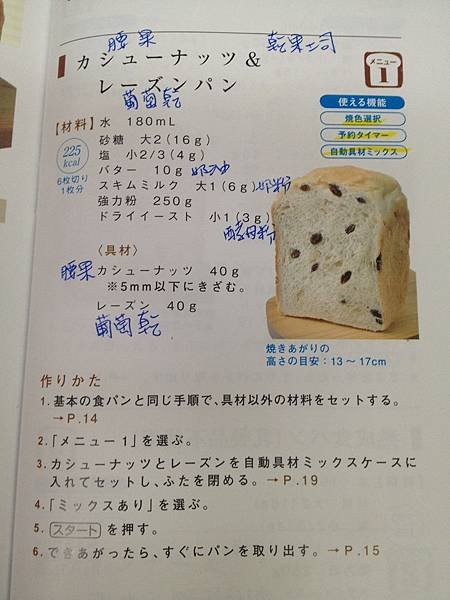 腰果
乾果土司
カシューナッツ&
レーズンパン
葡萄乾
メニュー
1
使える機能
焼色選択
予約タイマー
自動具材ミックス
【材料】水 180mL
砂糖 大2(16g)
塩 小2/3(4g)
バター 10g 奶油
スキムミルク 大1(6g) 奶粉
強力粉 250g
ドライイースト 小1(3g)
酵母粉
225
kcal
6枚切り
1枚分
〈具材〉
腰果 カシューナッツ 40g
※5mm以下にきざむ。
レーズン 40g
葡萄乾
焼きあがりの
高さの目安:13〜17cm
作りかた
1.基本の食パンと同じ手順で、具材以外の材料をセットする。
→P.14
2.「メニュー1」を選ぶ。
3.カシューナッツとレーズンを自動具材ミックスケースに
入れてセットし、ふたを閉める。→P.19
4.「ミックスあり」を選ぶ。
5.スタートを押す。
6.できあがったら、すぐにパンを取り出す。→P.15